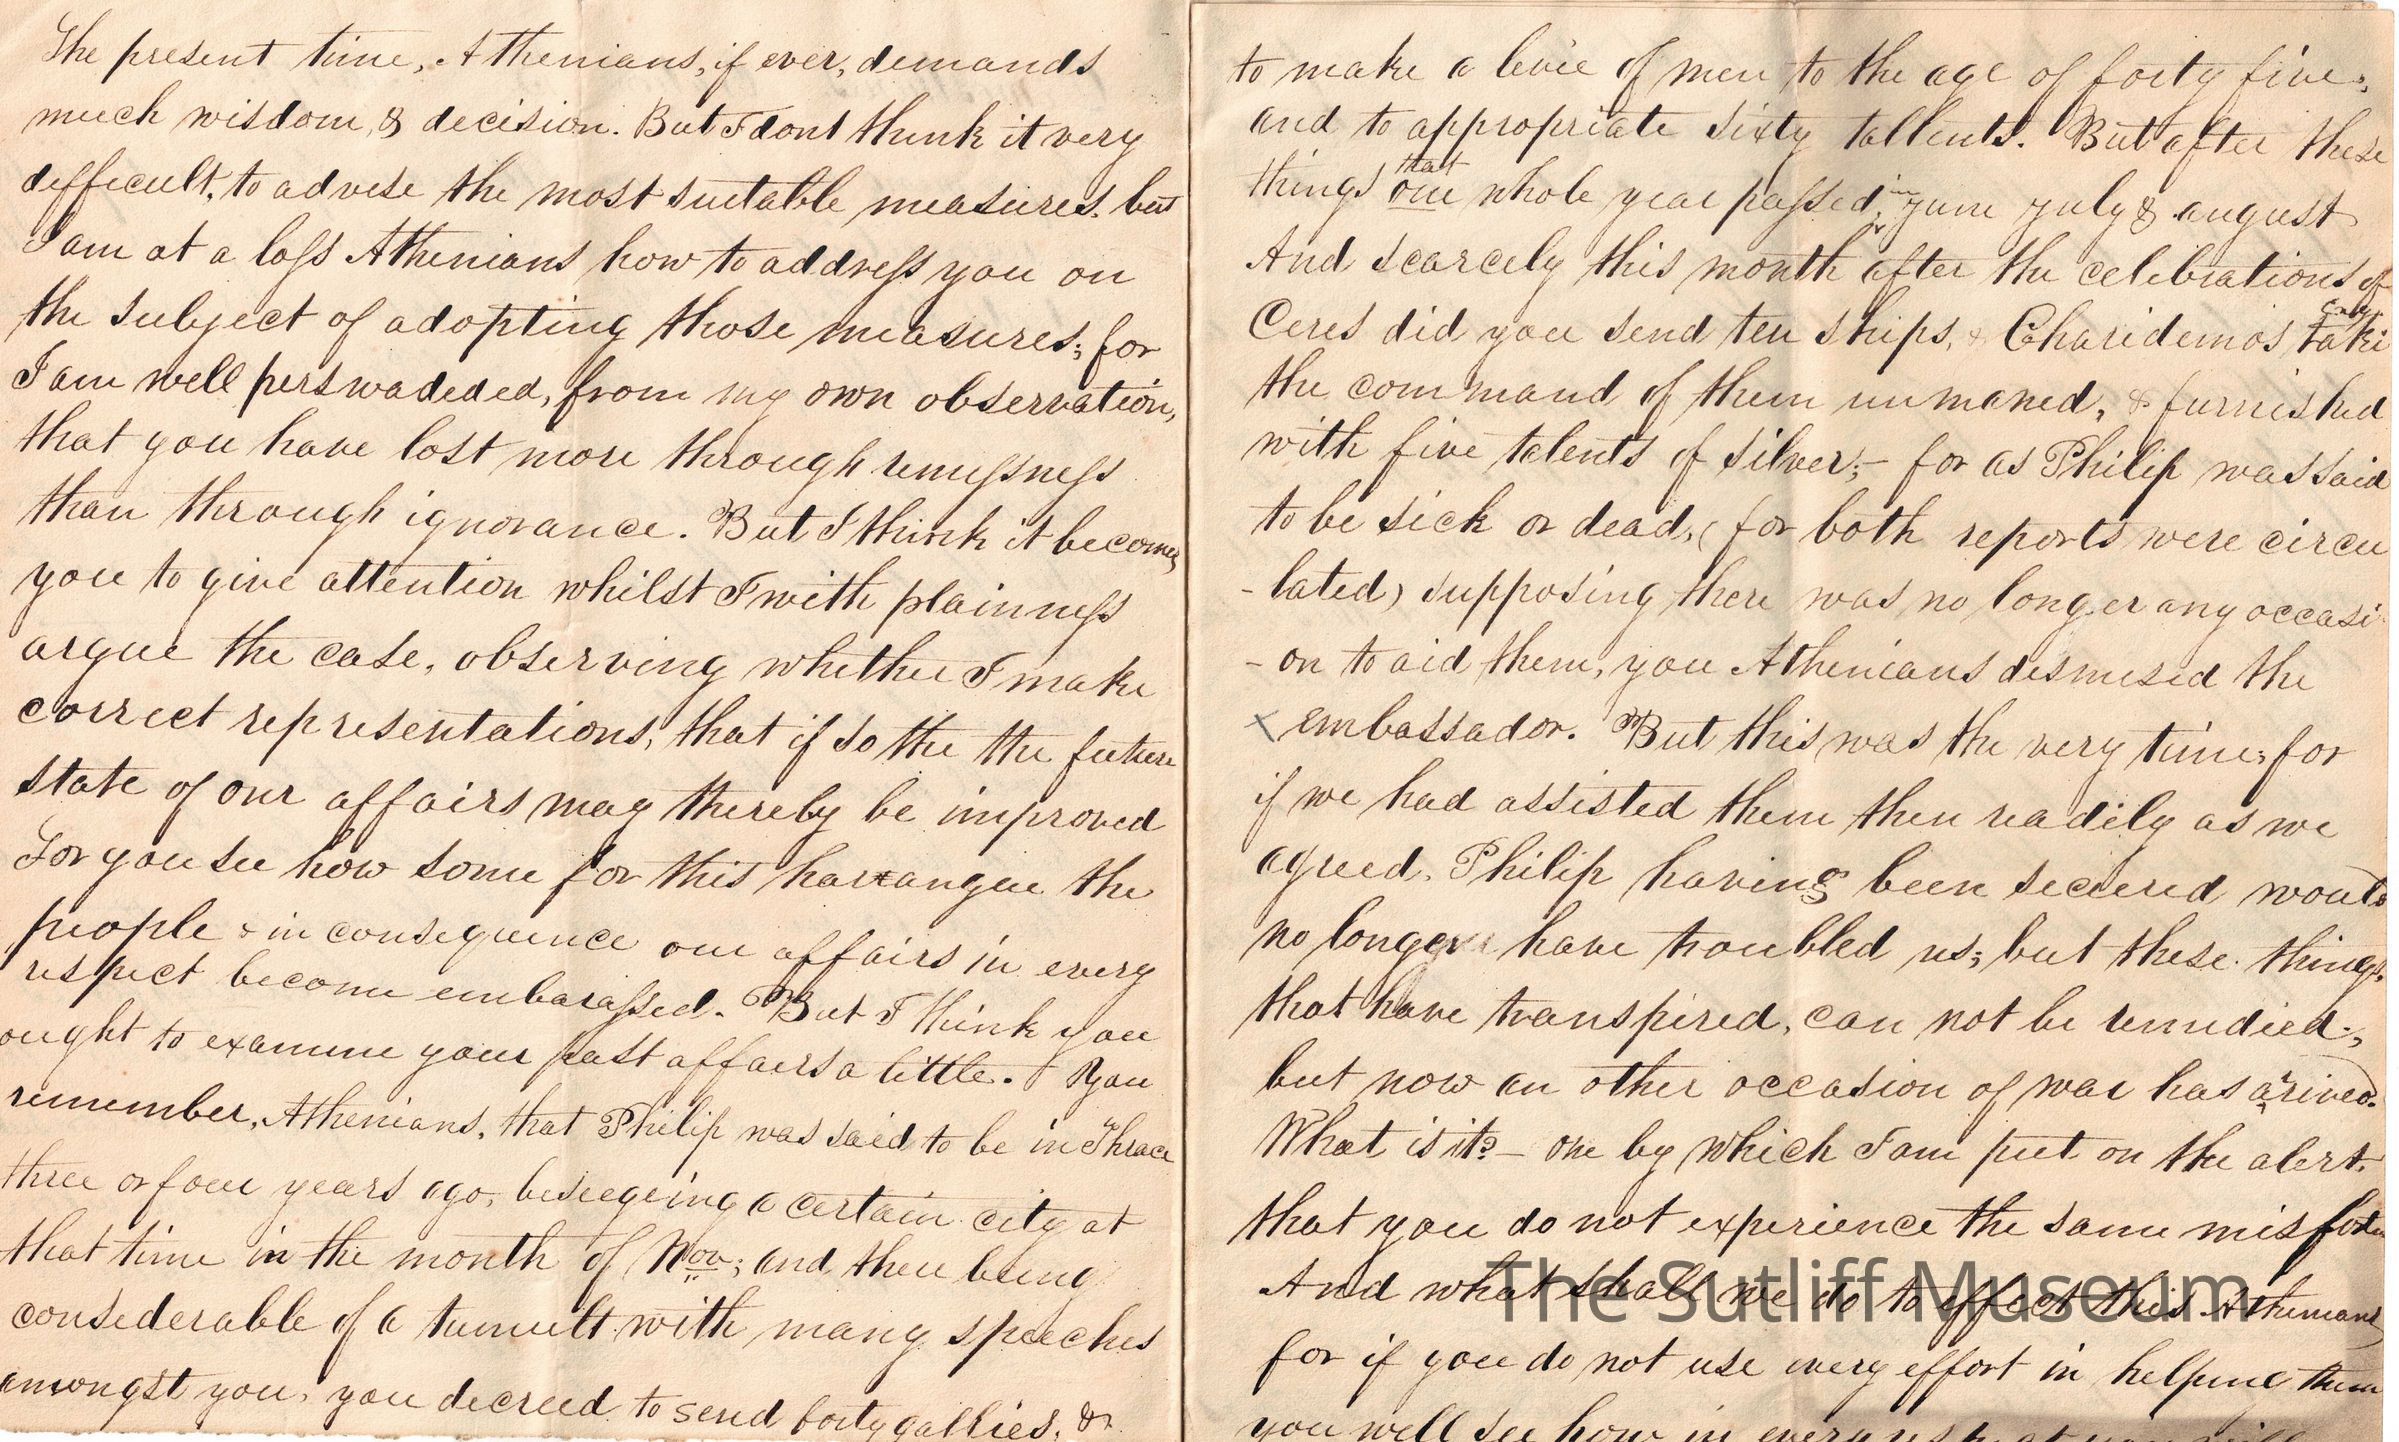 The present time, Athenians, if ever, demands
much wisdom, & decision. But I dont think it very
difficult, to advise the most suitable measures. but
I am at a loss Athenians how to address you on
the subject of adopting those measures; for
I am well perswadeded, from my own observation,
that you have lost more through remissness
than through ignorance. But I think it becomes
you to give attention whilst I with plainness
argue the case, observing whether I make
correct representations, that if so the the future
state of our affairs may thereby be improved
For you see how some for this harrangue the
people & in consequence our affairs in every
respect become embarassed. But I think you
ought to examine your past affairs a little. You
remember, Athenians, that Philip was said to be in Thrace
three or four years ago, beseegeing a certain city at
that time in the month of Nov; and then being
considerable of a tumult with many speeches
amongst you, you decreed to send forty gallies, &
to make a levie of men to the age of forty five,
and to appropriate sixty tallents. But after these
things that one whole year passed, in June July & august
And scarcely this month after the celebrations of
Ceres did you send ten ships, & Charidemos only take
the command of them unmaned, & furnished
with five talents of silver;- for as Philip was said
to be sick or dead, (for both reports were circu
-lated) supposing there was no longer any occasi
-on to aid them, you Athenians dismised the
x embassador. But this was the very time; for
if we had assisted them then readily as we
agreed, Philip having been secured would
no longer have troubled us; but these things
that have transpired, can not be remedied;
but now an other occasion of war has arived.
What is it? - one by which I am put on the alert,
that you do not experience the same misfortune
And what shall we do to effect this Athenians
for if you do not use every effort in helping them
you will see how in every respect you will
The Sutliff Museum